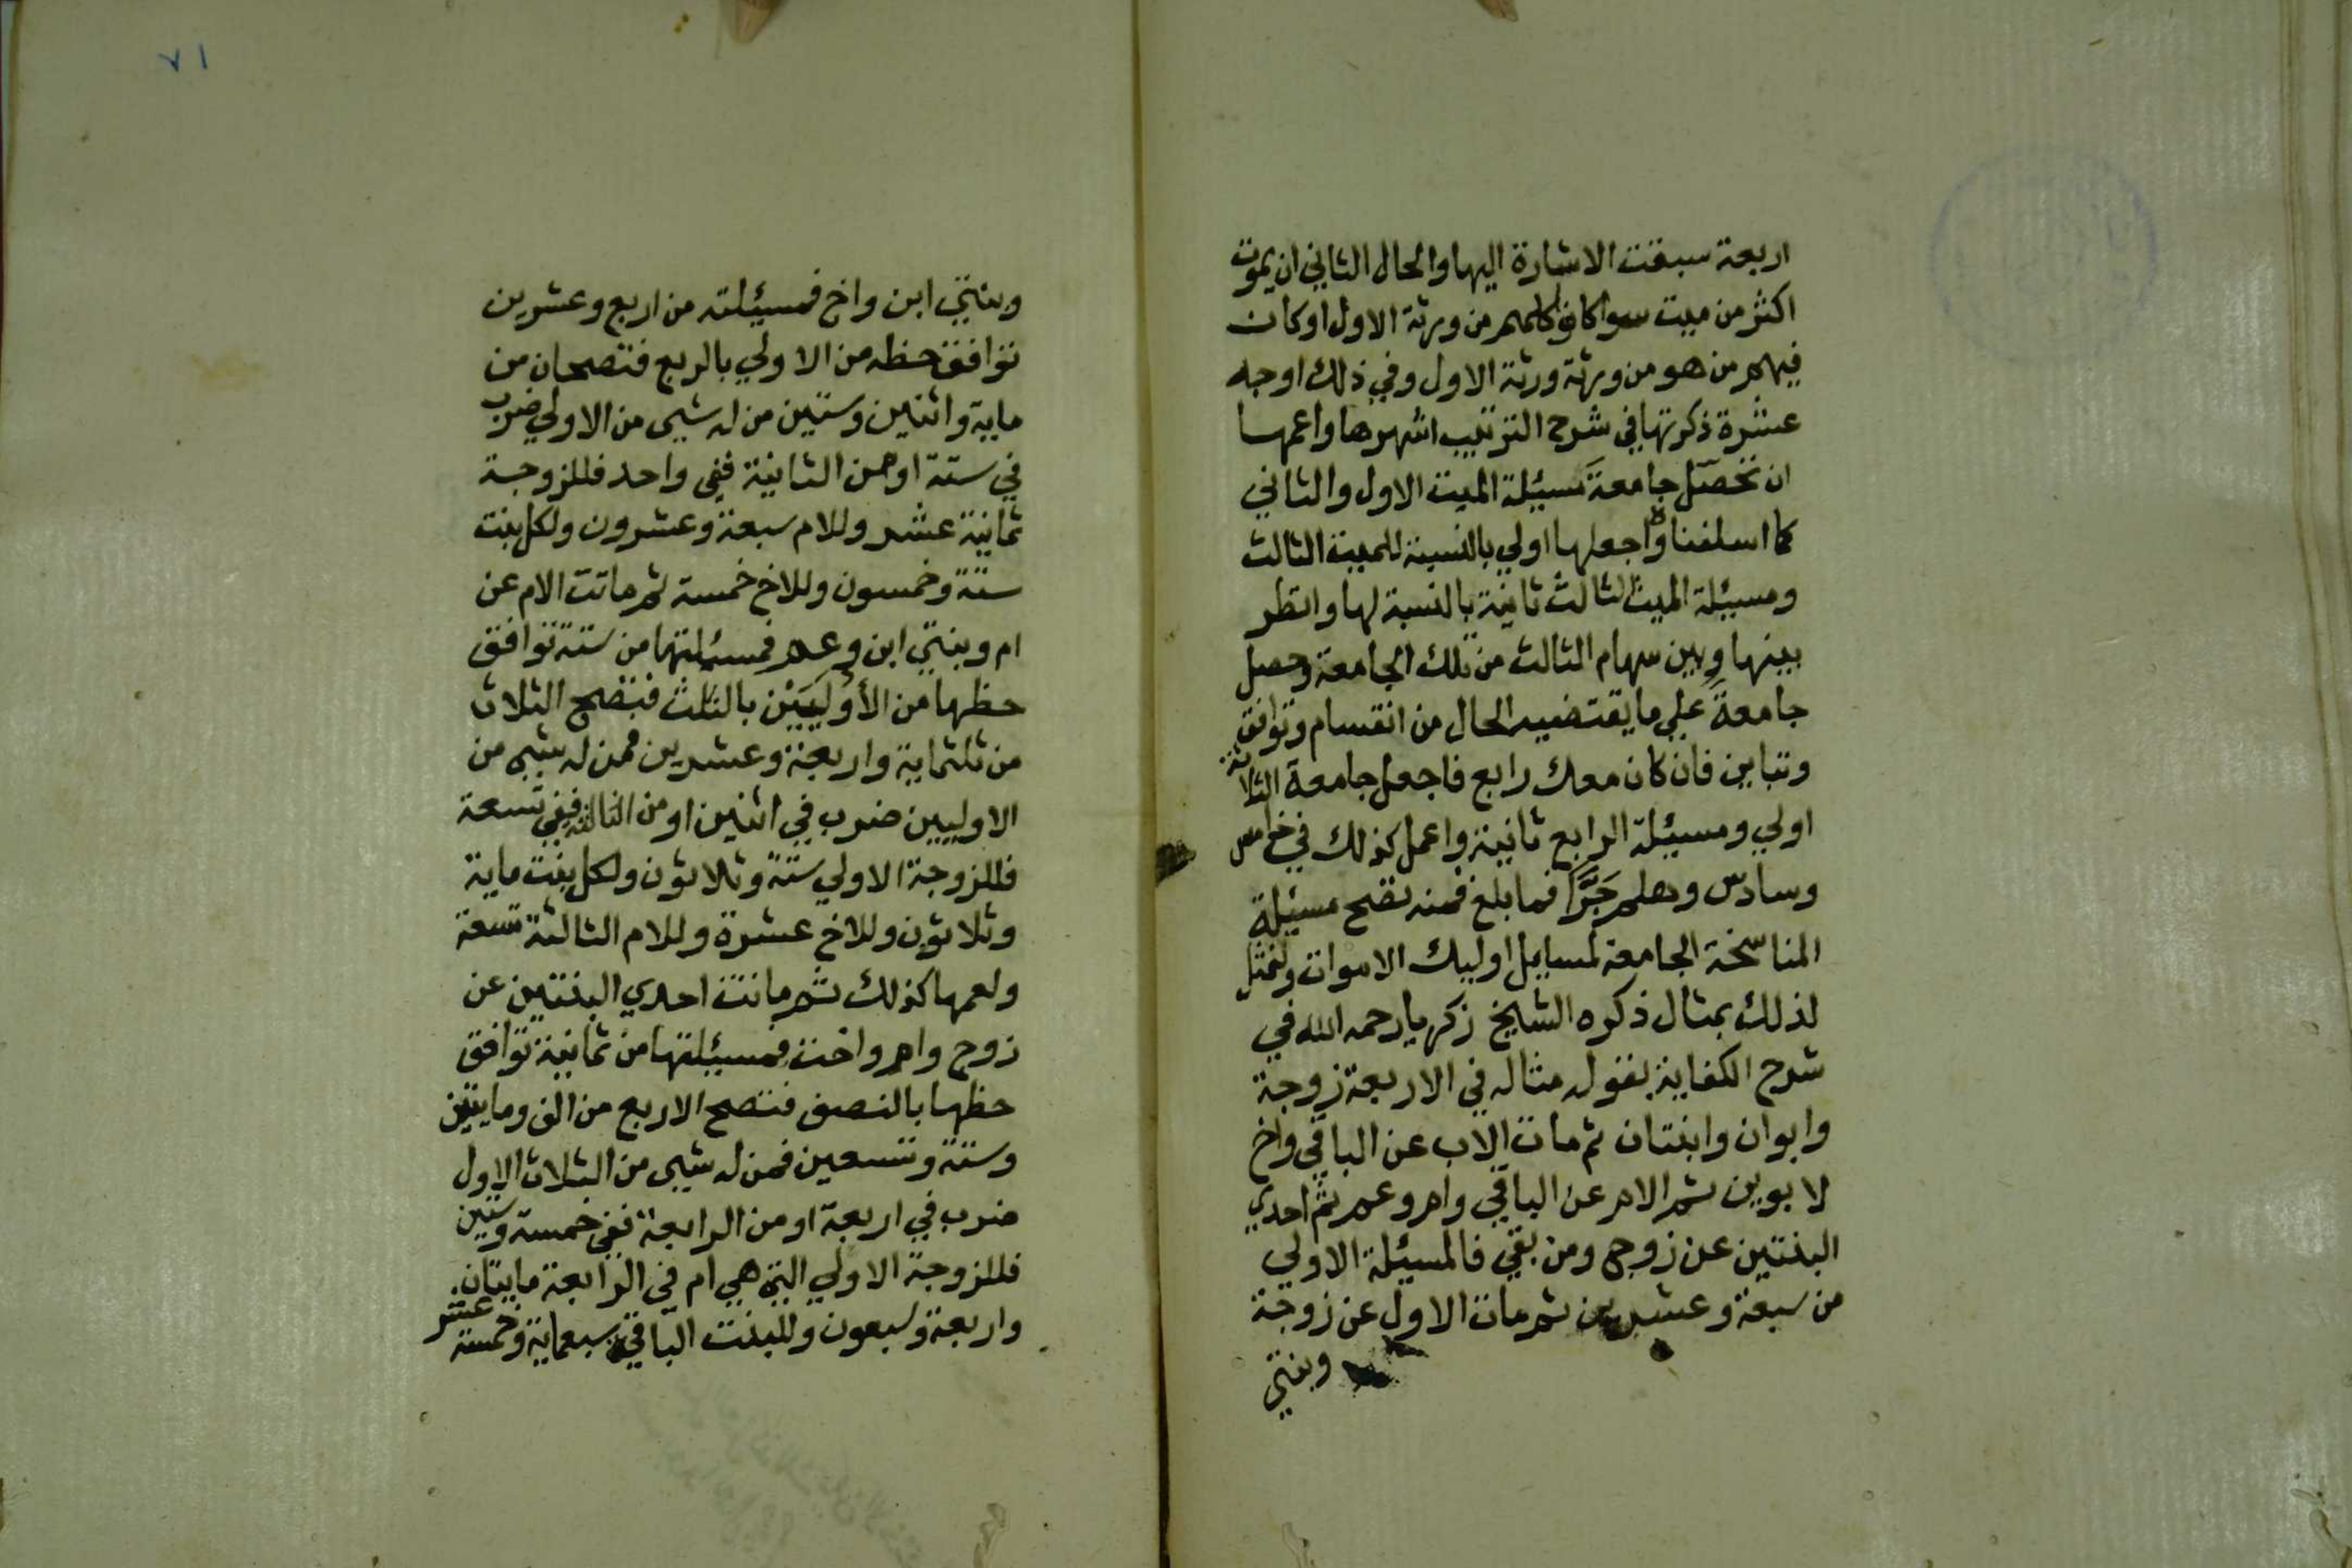 اربعة سبقت الاشارة اليها والحال الثاني ان يموت
اكثر من ميت سوا كانوا كلهم من ورثة الاول او كان
فيهم من هو من ورثة ورثة الاول وفي ذلك اوجه
عشرة ذكرتها في شرح الترتيب اشهرها واعمها
ان تحصّل جامعةَ مسيئلة الميت الاول والثاني
كما اسلفناه واجعلها اولي بالنسبة للميت الثالث
ومسيئلة الميت الثالث ثانية بالنسبة لها وانظر
بينها وبين سهام الثالث من تلك الجامعة وحصل
جامعةً علي ما يقتضيه الحال من انقسام وتوافق
وتباين فان كان معك رابع فاجعل جامعة الثلاثة
اولي ومسيئلة الرابع ثانية واعمل كذلك في خامس
وسادس وهلم جَرًّا فما بلغ فمنه تصح مسيئلة
المناسخة الجامعة لمسايل اوليك الاموات ولنمثل
لذلك بمثال ذكره الشيخ زكريا رحمه الله في
شرح الكفاية بقوله مثاله في الاربعة زوجة
وابوان وابنتان ثم مات الاب عن الباقي واخ
لابوين ثم الام عن الباقي وام وعم ثم احدي
البنتين عن زوج ومن بقي فالمسيئلة الاولي
من سبعة وعشرين ثم مات الاول عن زوجة
وبنتي
٧١
وبنتي ابن واخ فمسيئلته من اربع وعشرين
توافق حظه من الاولي بالربع فتصحان من
ماية واثنين وستين من له شيى من الاولي ضرب
في ستة او من الثانية ففي واحد فللزوجة
ثمانية عشر وللام سبعة وعشرون ولكل بنت
ستة وخمسون وللاخ خمسة ثم ماتت الام عن
ام وبنتي ابن وعم فمسئلتها من ستة توافق
حظها من الأُولَيَيْن بالثلث فتصح الثلاث
من ثلثماية واربعة وعشرين فمن له شيى من
الاوليين ضرب في اثنين او من الثالثة ففي تسعة
فللزوجة الاولي ستة وثلاثون ولكل بنت ماية
وثلاثون وللاخ عشرة وللام الثالثة تسعة
ولعمها كذلك ثم ماتت احدي البنتين عن
زوج وام واخت فمسيئلتها من ثمانية توافق
حظها بالنصف فتصح الاربع من الف ومايتين
وستة وتسعين فمن له شيى من الثلاث الاول
ضرب في اربعة او من الرابعة ففي خمسة وستين
فللزوجة الاولي التي هي ام في الرابعة مايتان
واربعة وسبعون وللبنت الباقية سبعماية وخمسة عشر